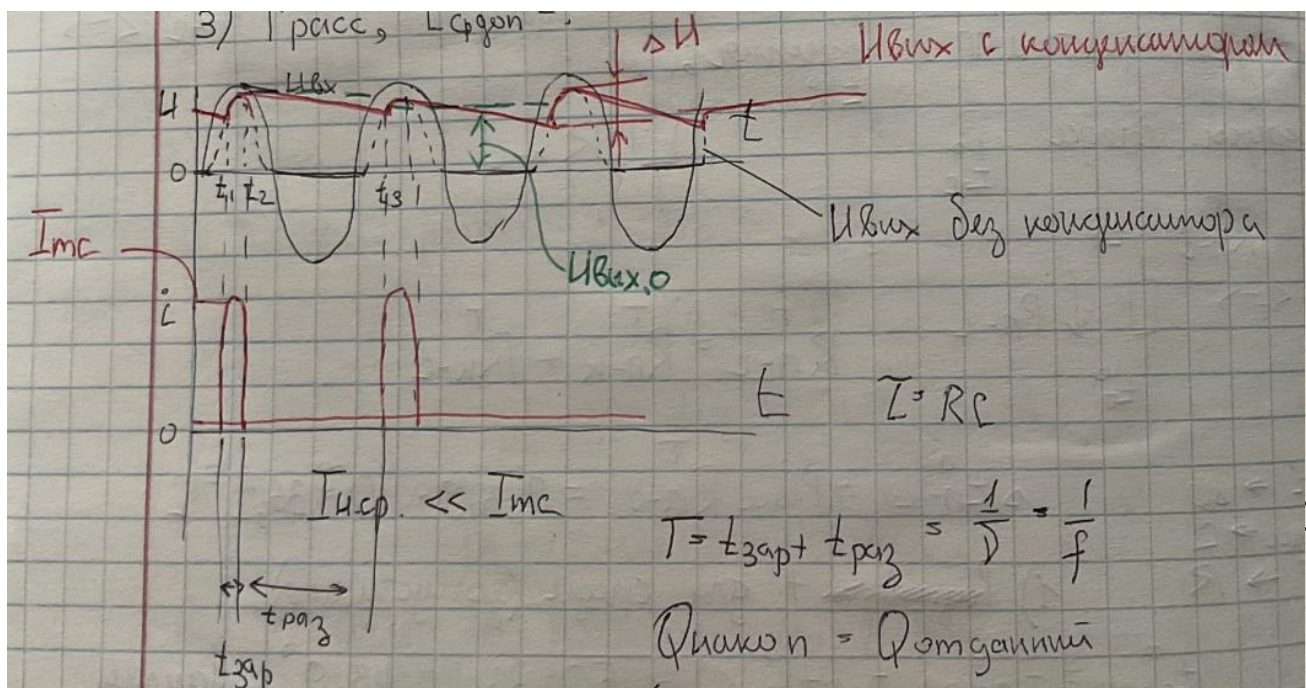 3) Pрасс, Iср доп
ΔU
Uвых с конденсатором
U
Uвх
t
0
t1 t2 t3
Uвых без конденсатора
Imc
Uвых,0
i
t τ = RC
0
Iн.ср. << Imc
T = tзар + tраз = 1/ν = 1/f
tраз
Qнакоп = Qотданный
tзар